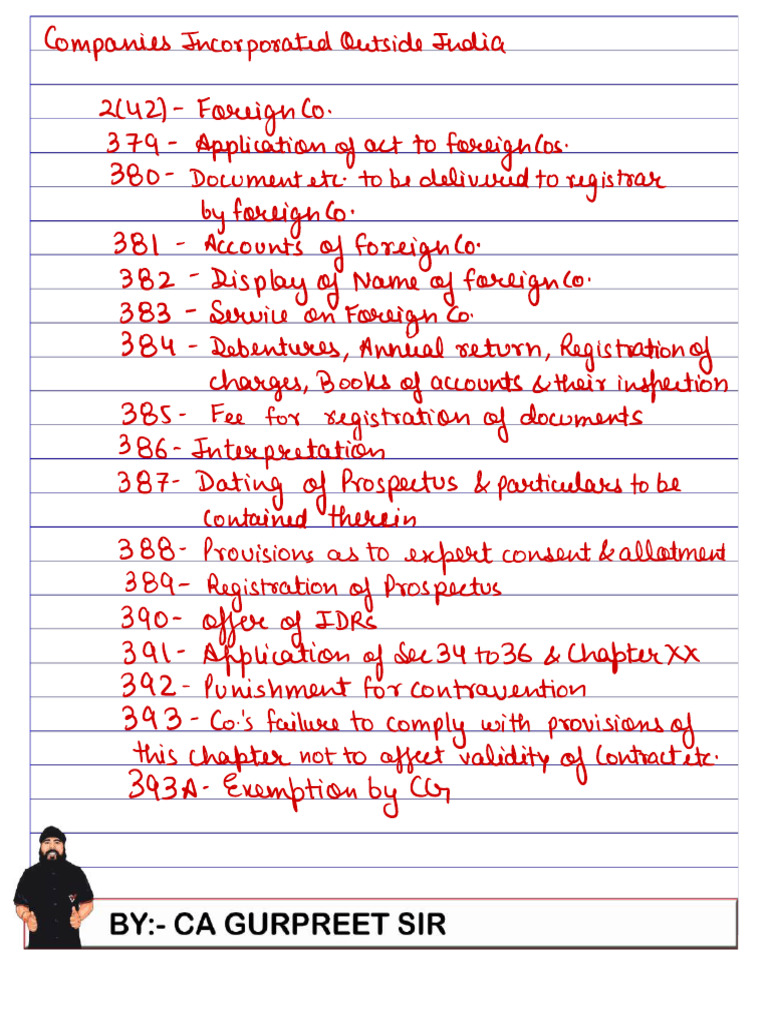 Companies Incorporated Outside India
2(42) - Foreign Co.
379 - Application of act to foreign Cos.
380 - Document etc. to be delivered to registrar
by foreign Co.
381 - Accounts of foreign Co.
382 - Display of Name of foreign Co.
383 - Service on Foreign Co.
384 - Debentures, Annual return, Registration of
charges, Books of accounts & their inspection
385 - Fee for registration of documents
386 - Interpretation
387 - Dating of Prospectus & particulars to be
contained therein
388 - Provisions as to expert consent & allotment
389 - Registration of Prospectus
390 - Offer of IDRs
391 - Application of Sec 34 to 36 & Chapter XX
392 - Punishment for contravention
393 - Co.'s failure to comply with provisions of
this chapter not to affect validity of Contract etc.
393A - Exemption by CG
BY:- CA GURPREET SIR